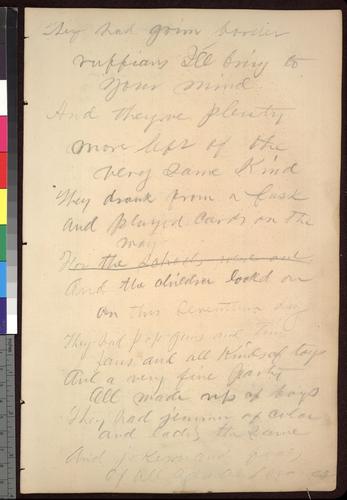 They had grim border
ruffians I'll bring to
your mind
And they've plenty
more left of the
very same Kind
They drank from a cask
And played Cards on the
way
For the schools were out
And the children look'd on
on this
They had pop guns and tin
and all Kinds of toys
And a very fine party
All made up of boys
They had of color
and ladies the same
And
of all